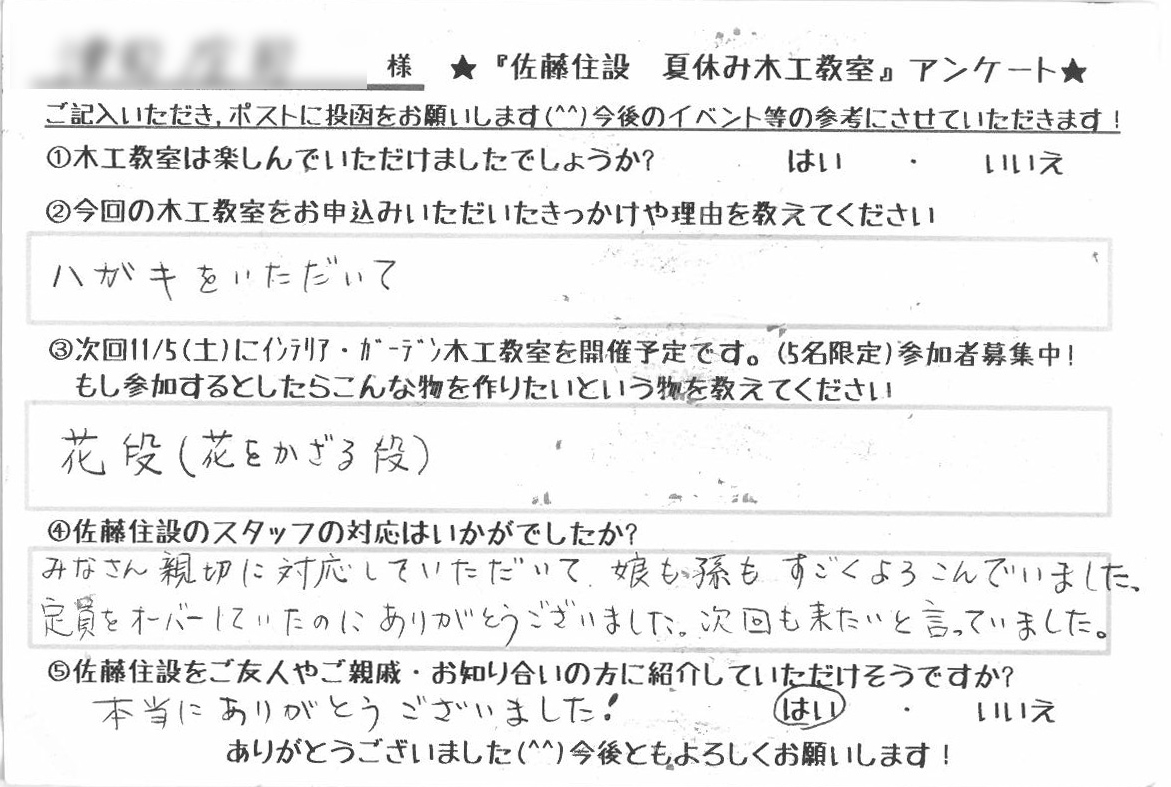 様 ★『佐藤住設 夏休み木工教室』アンケート★
ご記入いただき,ポストに投函をお願いします(^^)今後のイベント等の参考にさせていただきます!
①木工教室は楽しんでいただけましたでしょうか? はい ・ いいえ
②今回の木工教室をお申込みいただいたきっかけや理由を教えてください
ハガキをいただいて
③次回11/5(土)にｲﾝﾃﾘｱ・ｶﾞｰﾃﾞﾝ木工教室を開催予定です。(5名限定)参加者募集中!
もし参加するとしたらこんな物を作りたいという物を教えてください
花段(花をかざる段)
④佐藤住設のスタッフの対応はいかがでしたか?
みなさん親切に対応していただいて、娘も孫もすごくよろこんでいました、
定員をオーバーしていたのにありがとうございました。次回も来たいと言っていました。
⑤佐藤住設をご友人やご親戚・お知り合いの方に紹介していただけそうですか?
本当にありがとうございました! はい ・ いいえ
ありがとうございました(^^)今後ともよろしくお願いします!